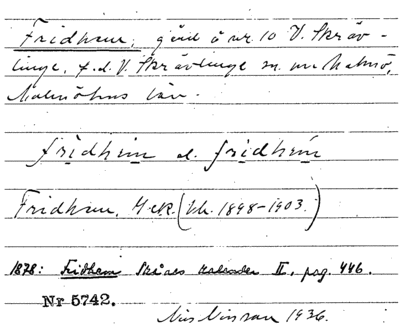 Fridhem, gård å nr 10 V. Skräv-
linge, f.d. V. Skrävlinge sn. nu Malmö,
Malmöhus län.
frìdhèm el. frìdhém
Fridhem, H.ek. (bl. 1898-1903.)
1878: Fridhem Skånes Kalender II, pag. 446.
Nr 5742.
Nils Nilsson 1936.